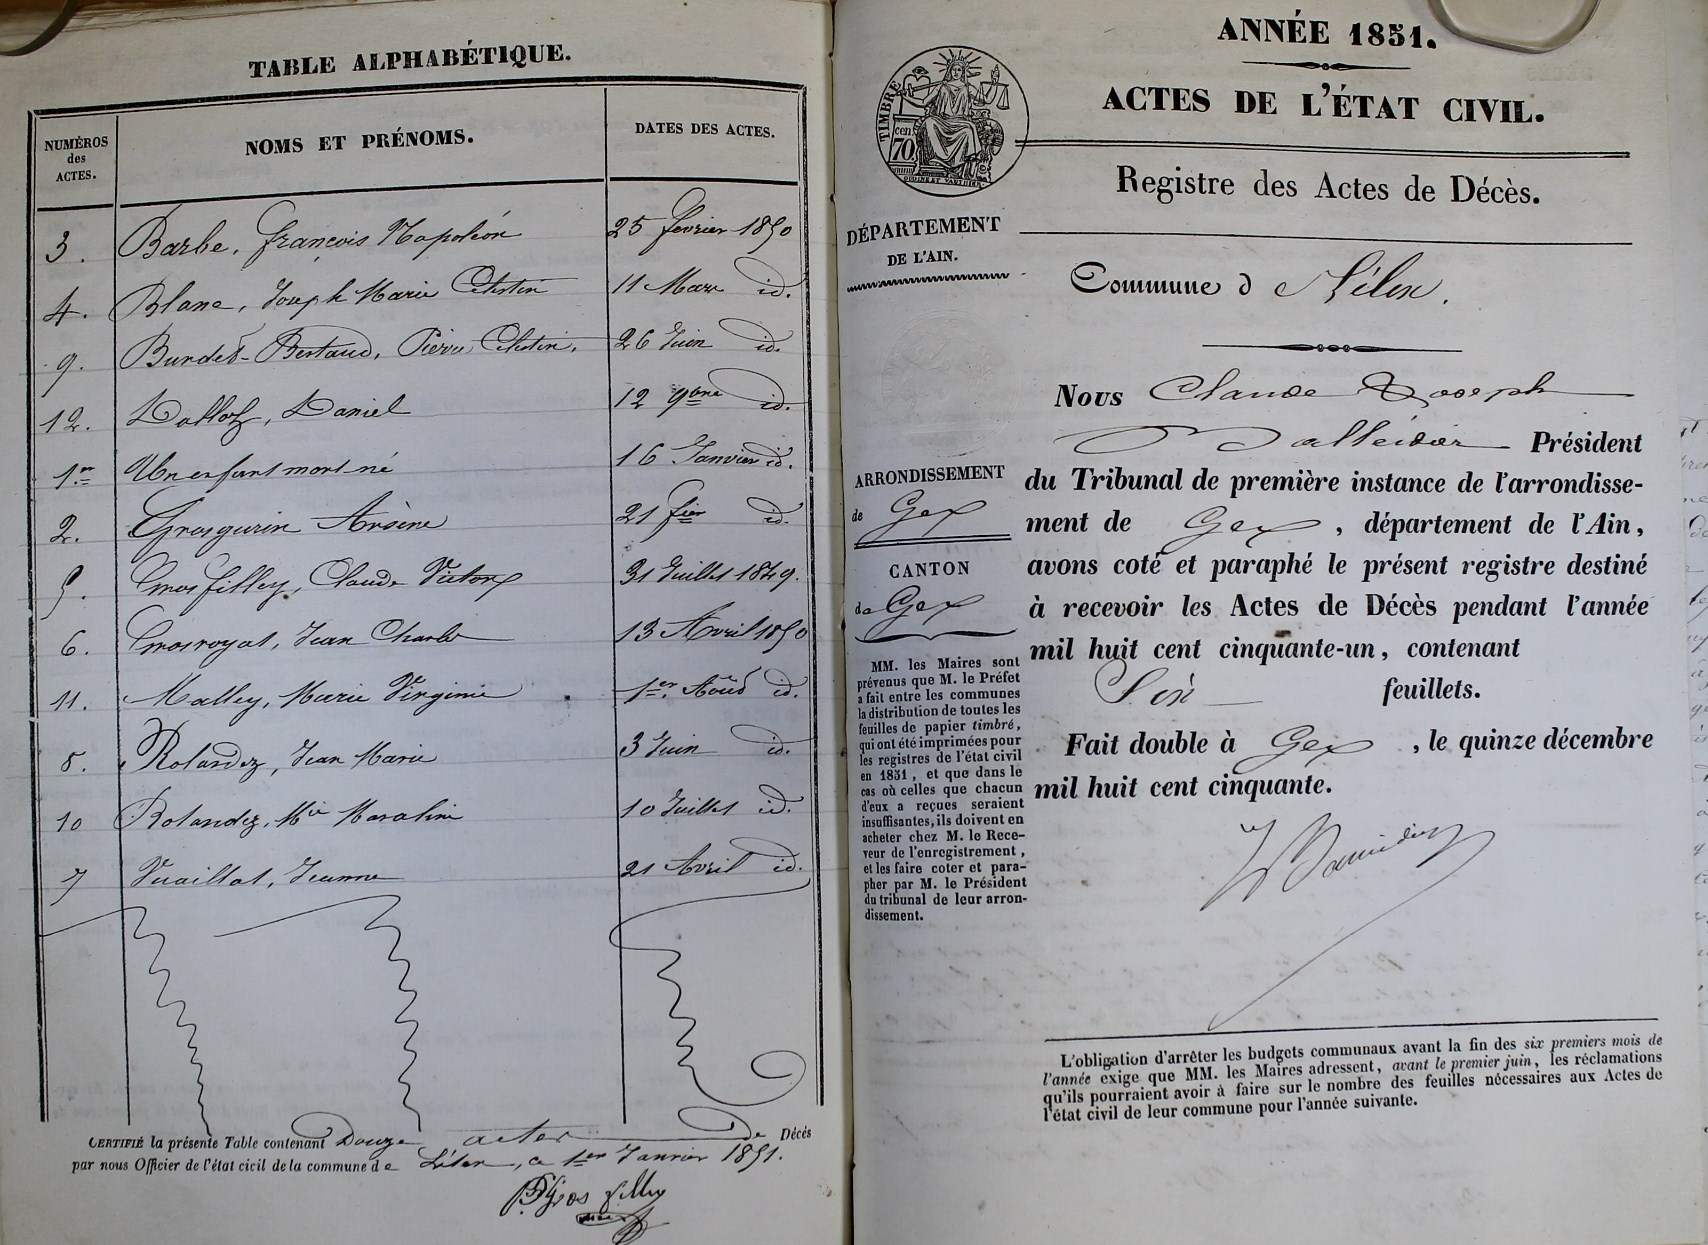 TABLE ALPHABÉTIQUE.
NUMÉROS des ACTES. NOMS ET PRÉNOMS. DATES DES ACTES.
3. Barbe, François Napoléon 25 février 1850
4. Blanc, Joseph Marie Célestin 11 Mars id.
9. Burdet-Bertaud, Pierre Célestin, 26 Juin id.
12. Dalloz, Daniel 12 9bre id.
1er Un enfant mort né 16 Janvier id.
2. Grosgurin Arsène 21 fier id.
5. Grosfilley, Claude Victor 31 Juillet 1849.
6. Grosroyat, Jean Charles 13 Avril 1850
11. Malley, Marie Virginie 1er Août id.
8. Rolandez, Jean Marie 3 Juin id.
10 Rolandez, Mie 10 Juillet id.
7 Vuaillat, Jeanne 21 Avril id.
CERTIFIÉ la présente Table contenant Douze actes de Décés
par nous Officier de l'état cicil de la commune de Lélex, ce 1er Janvier 1851.
Grosfilley
ANNÉE 1851.
ACTES DE L'ÉTAT CIVIL.
TIMBRE
70
cen
Registre des Actes de Décès.
DÉPARTEMENT
DE L'AIN.
Commune d Lélex.
Nous Claude Joseph
Président
du Tribunal de première instance de l'arrondisse-
ment de Gex, département de l'Ain,
avons coté et paraphé le présent registre destiné
à recevoir les Actes de Décès pendant l'année
mil huit cent cinquante-un, contenant
Six feuillets.
Fait double à Gex, le quinze décembre
mil huit cent cinquante.
ARRONDISSEMENT
de Gex
CANTON
de Gex
MM. les Maires sont
prévenus que M. le Préfet
a fait entre les communes
la distribution de toutes les
feuilles de papier timbré,
qui ont été imprimées pour
les registres de l'état civil
en 1851, et que dans le
cas où celles que chacun
d'eux a reçues seraient
insuffisantes, ils doivent en
acheter chez M. le Rece-
veur de l'enregistrement,
et les faire coter et para-
pher par M. le Président
du tribunal de leur arron-
dissement.
L'obligation d'arrêter les budgets communaux avant la fin des six premiers mois de
l'année exige que MM. les Maires adressent, avant le premier juin, les réclamations
qu'ils pourraient avoir à faire sur le nombre des feuilles nécessaires aux Actes de
l'état civil de leur commune pour l'année suivante.